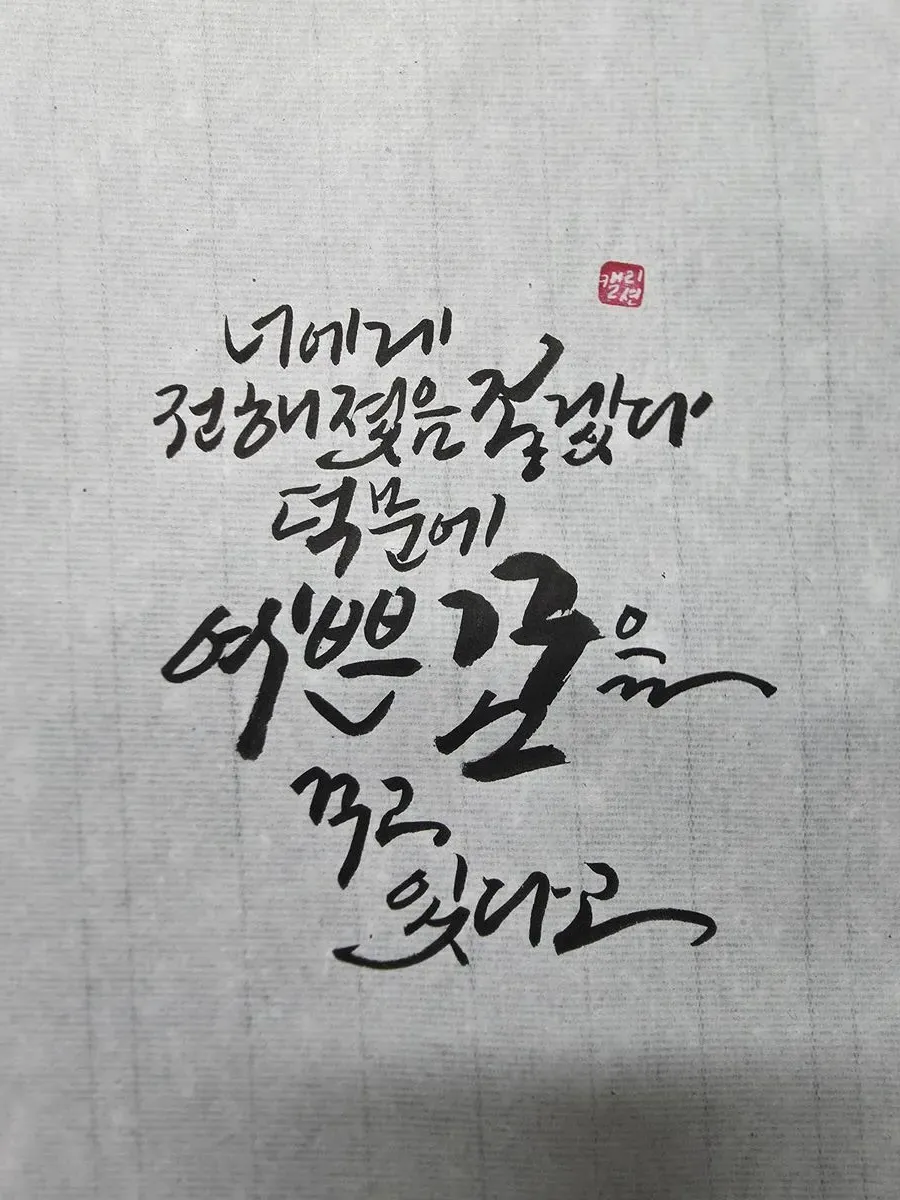 캘리
션
너에게
전해졌음 좋겠다
덕분에
예쁜 꿈을
꾸고
있다고